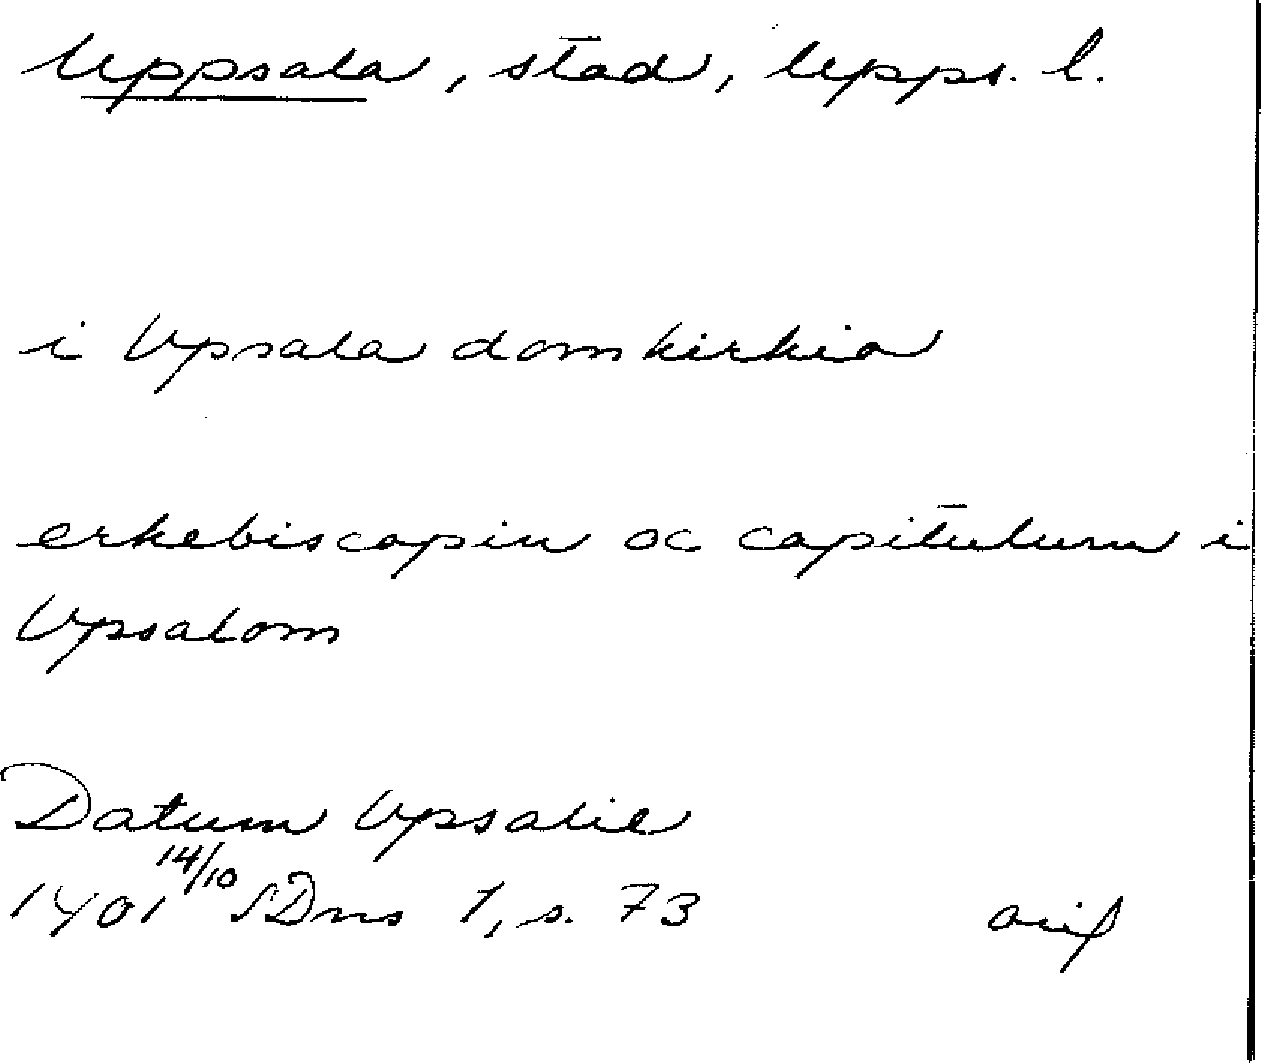 Uppsala, stad, Upps. l.
i Vpsala domkirkio
erkebiscopin oc capitulum i
Vpsalom
Datum Vpsalie
1401 14/10 SDns 1, s. 73 orig